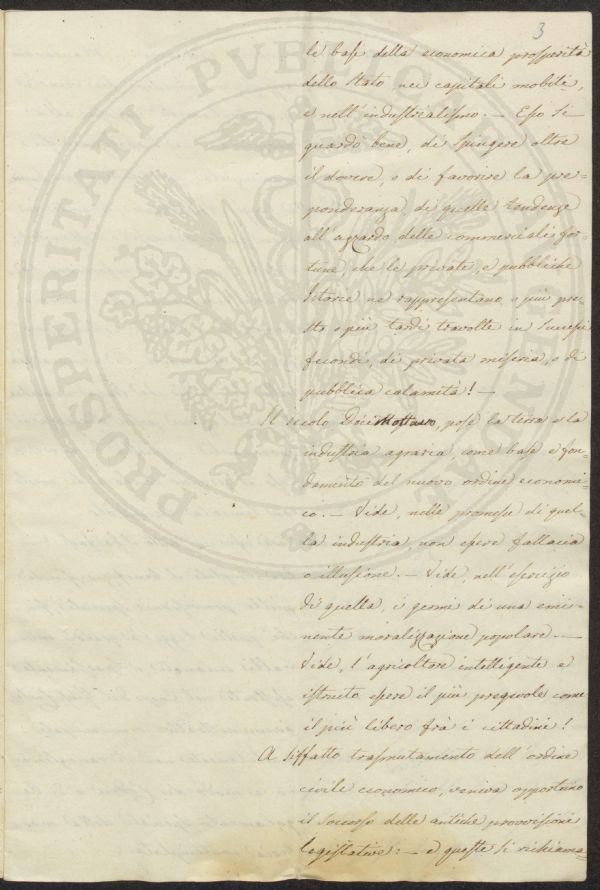 3
le basi della economica prosperità
dello Stato nei capitali mobili,
e nell'industrialismo. — Esso si
guardò bene, di spingere oltre
il dovere, o di favorire la pre=
ponderanza di quelle tendenze
all'azzardo delle commerciali for=
tune, che le private, e pubbliche
Storie ne rappresentano o più pre=
sto o più tardi travolte in successi
fecondi, di privata miseria, o di
pubblica calamità! —
Il secolo Deciottavo, pose la terra e la
industria agraria, come base e fon=
damento del nuovo ordine economi=
co. — Vide, nelle promesse di quel=
la industria, non essere fallacia
o illusione. — Vide, nell'esercizio
di quella, i germi di una emi=
nente moralizzazione popolare. —
Vide, l'agricoltore intelligente e
istruito essere il più pregevole come
il più libero frà i cittadini!
A siffatto trasmutamento dell'ordine
civile economico, veniva opportuno
il soccorso delle antiche provvisioni
legislative: — e queste si richiama=
PROSPERITATI PVBLICAE AVGENDAE